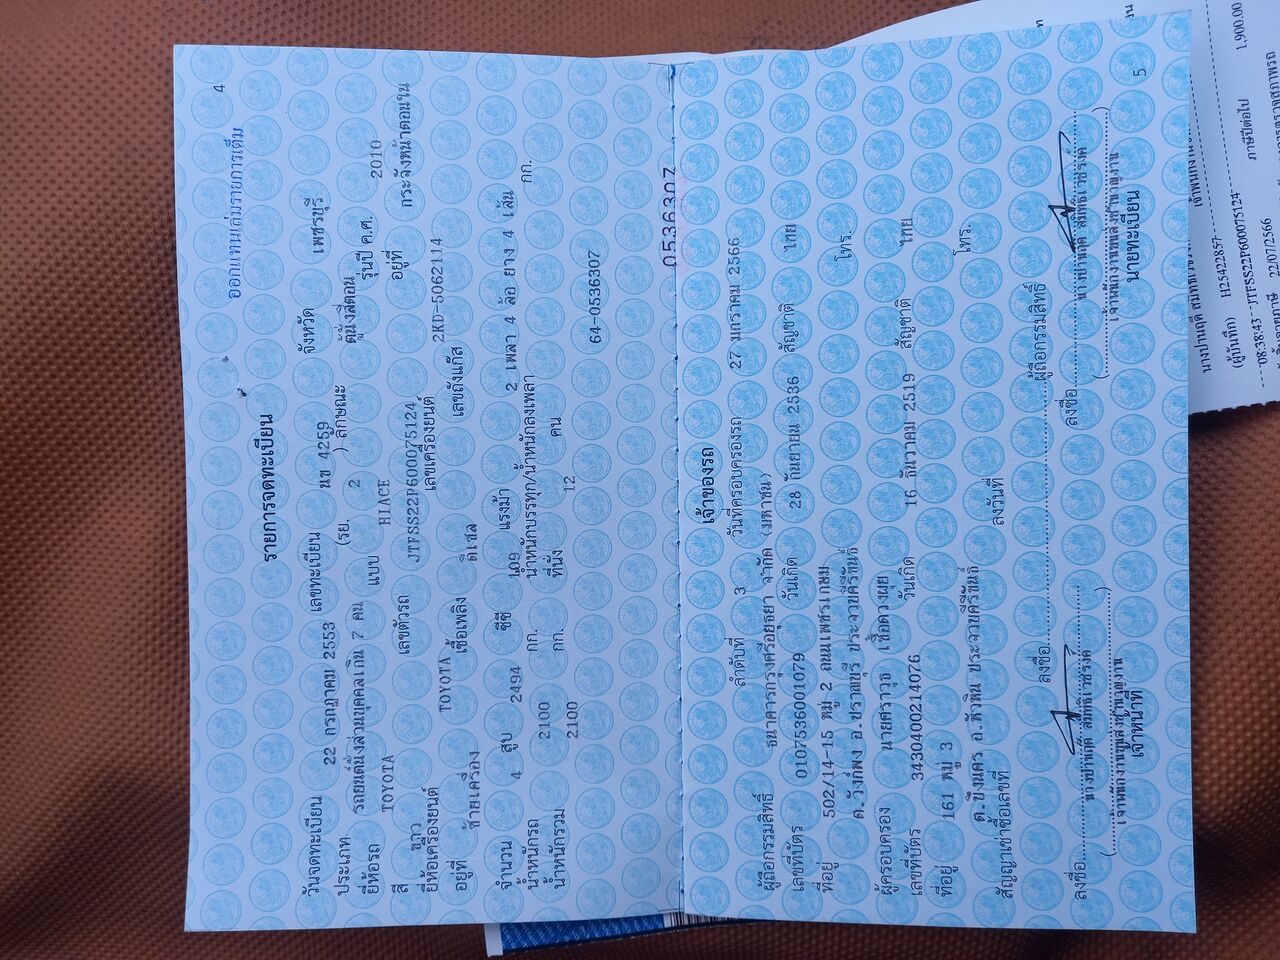 4
ออกแทนเล่มรายการเต็ม
รายการจดทะเบียน
วันจดทะเบียน 22 กรกฎาคม 2553 เลขทะเบียน นข 4259 จังหวัด เพชรบุรี
ประเภท รถยนต์นั่งส่วนบุคคลเกิน 7 คน (รย. 2 ) ลักษณะ ตู้นั่งสี่ตอน
ยี่ห้อรถ TOYOTA แบบ HIACE รุ่นปี ค.ศ. 2010
สี ขาว เลขตัวรถ JTFSS22P600075124 อยู่ที่ กระจังหน้าตอนใน
ยี่ห้อเครื่องยนต์ TOYOTA เลขเครื่องยนต์ 2KD-5062114
อยู่ที่ ซ้ายเครื่อง เชื้อเพลิง ดีเซล เลขถังแก๊ส
จำนวน 4 สูบ 2494 ซีซี 109 แรงม้า 2 เพลา 4 ล้อ ยาง 4 เส้น
น้ำหนักรถ 2100 กก. น้ำหนักบรรทุก/น้ำหนักลงเพลา กก.
น้ำหนักรวม 2100 กก. ที่นั่ง 12 คน
64-0536307
0536307
เจ้าของรถ
ลำดับที่ 3 วันที่ครอบครองรถ 27 มกราคม 2566
ผู้ถือกรรมสิทธิ์ ธนาคารกรุงศรีอยุธยา จำกัด (มหาชน)
เลขที่บัตร 0107536001079 วันเกิด 28 กันยายน 2536 สัญชาติ ไทย
ที่อยู่ 502/14-15 หมู่ 2 ถนนเพชรเกษม
ต.วังก์พง อ.ปราณบุรี ประจวบคีรีขันธ์ โทร.
ผู้ครอบครอง นายศราวุธ เชื้อดวงผุย
เลขที่บัตร 3430400214076 วันเกิด 16 ธันวาคม 2519 สัญชาติ ไทย
ที่อยู่ 161 หมู่ 3
ต.บึงนคร อ.หัวหิน ประจวบคีรีขันธ์ โทร.
สัญญาเช่าซื้อเลขที่ ลงวันที่
ลงชื่อ ผู้ถือกรรมสิทธิ์
ลงชื่อ ลงชื่อ
( เจ้าพนักงานขนส่งชำนาญงาน ) ( เจ้าพนักงานขนส่งชำนาญงาน )
เจ้าหน้าที่ นายทะเบียน
5
(ผู้บันทึก) H25422857
08:38:43--JTFSS22P600075124 ภาษีปีต่อไป 1,900.00
22/07/2566